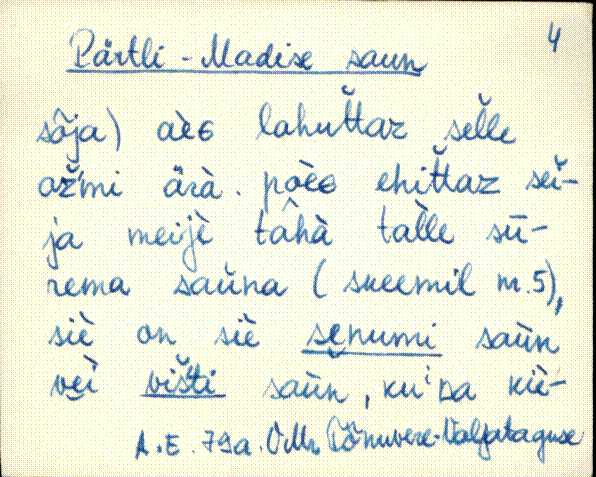 4
Pärtli-Madise saun
sõja) aèG lahuťtaz šelle
ožmi ärà. pòèG ehiťtaz sei-
ja meijè tâhà tàlle sū-
rema saùna (skeemil nr.5),
siè on siè senumi saùn
veì višti saùn, kuˈDa kiè-
A.E. 79a. VMr. Põnuvere-Valjataguse